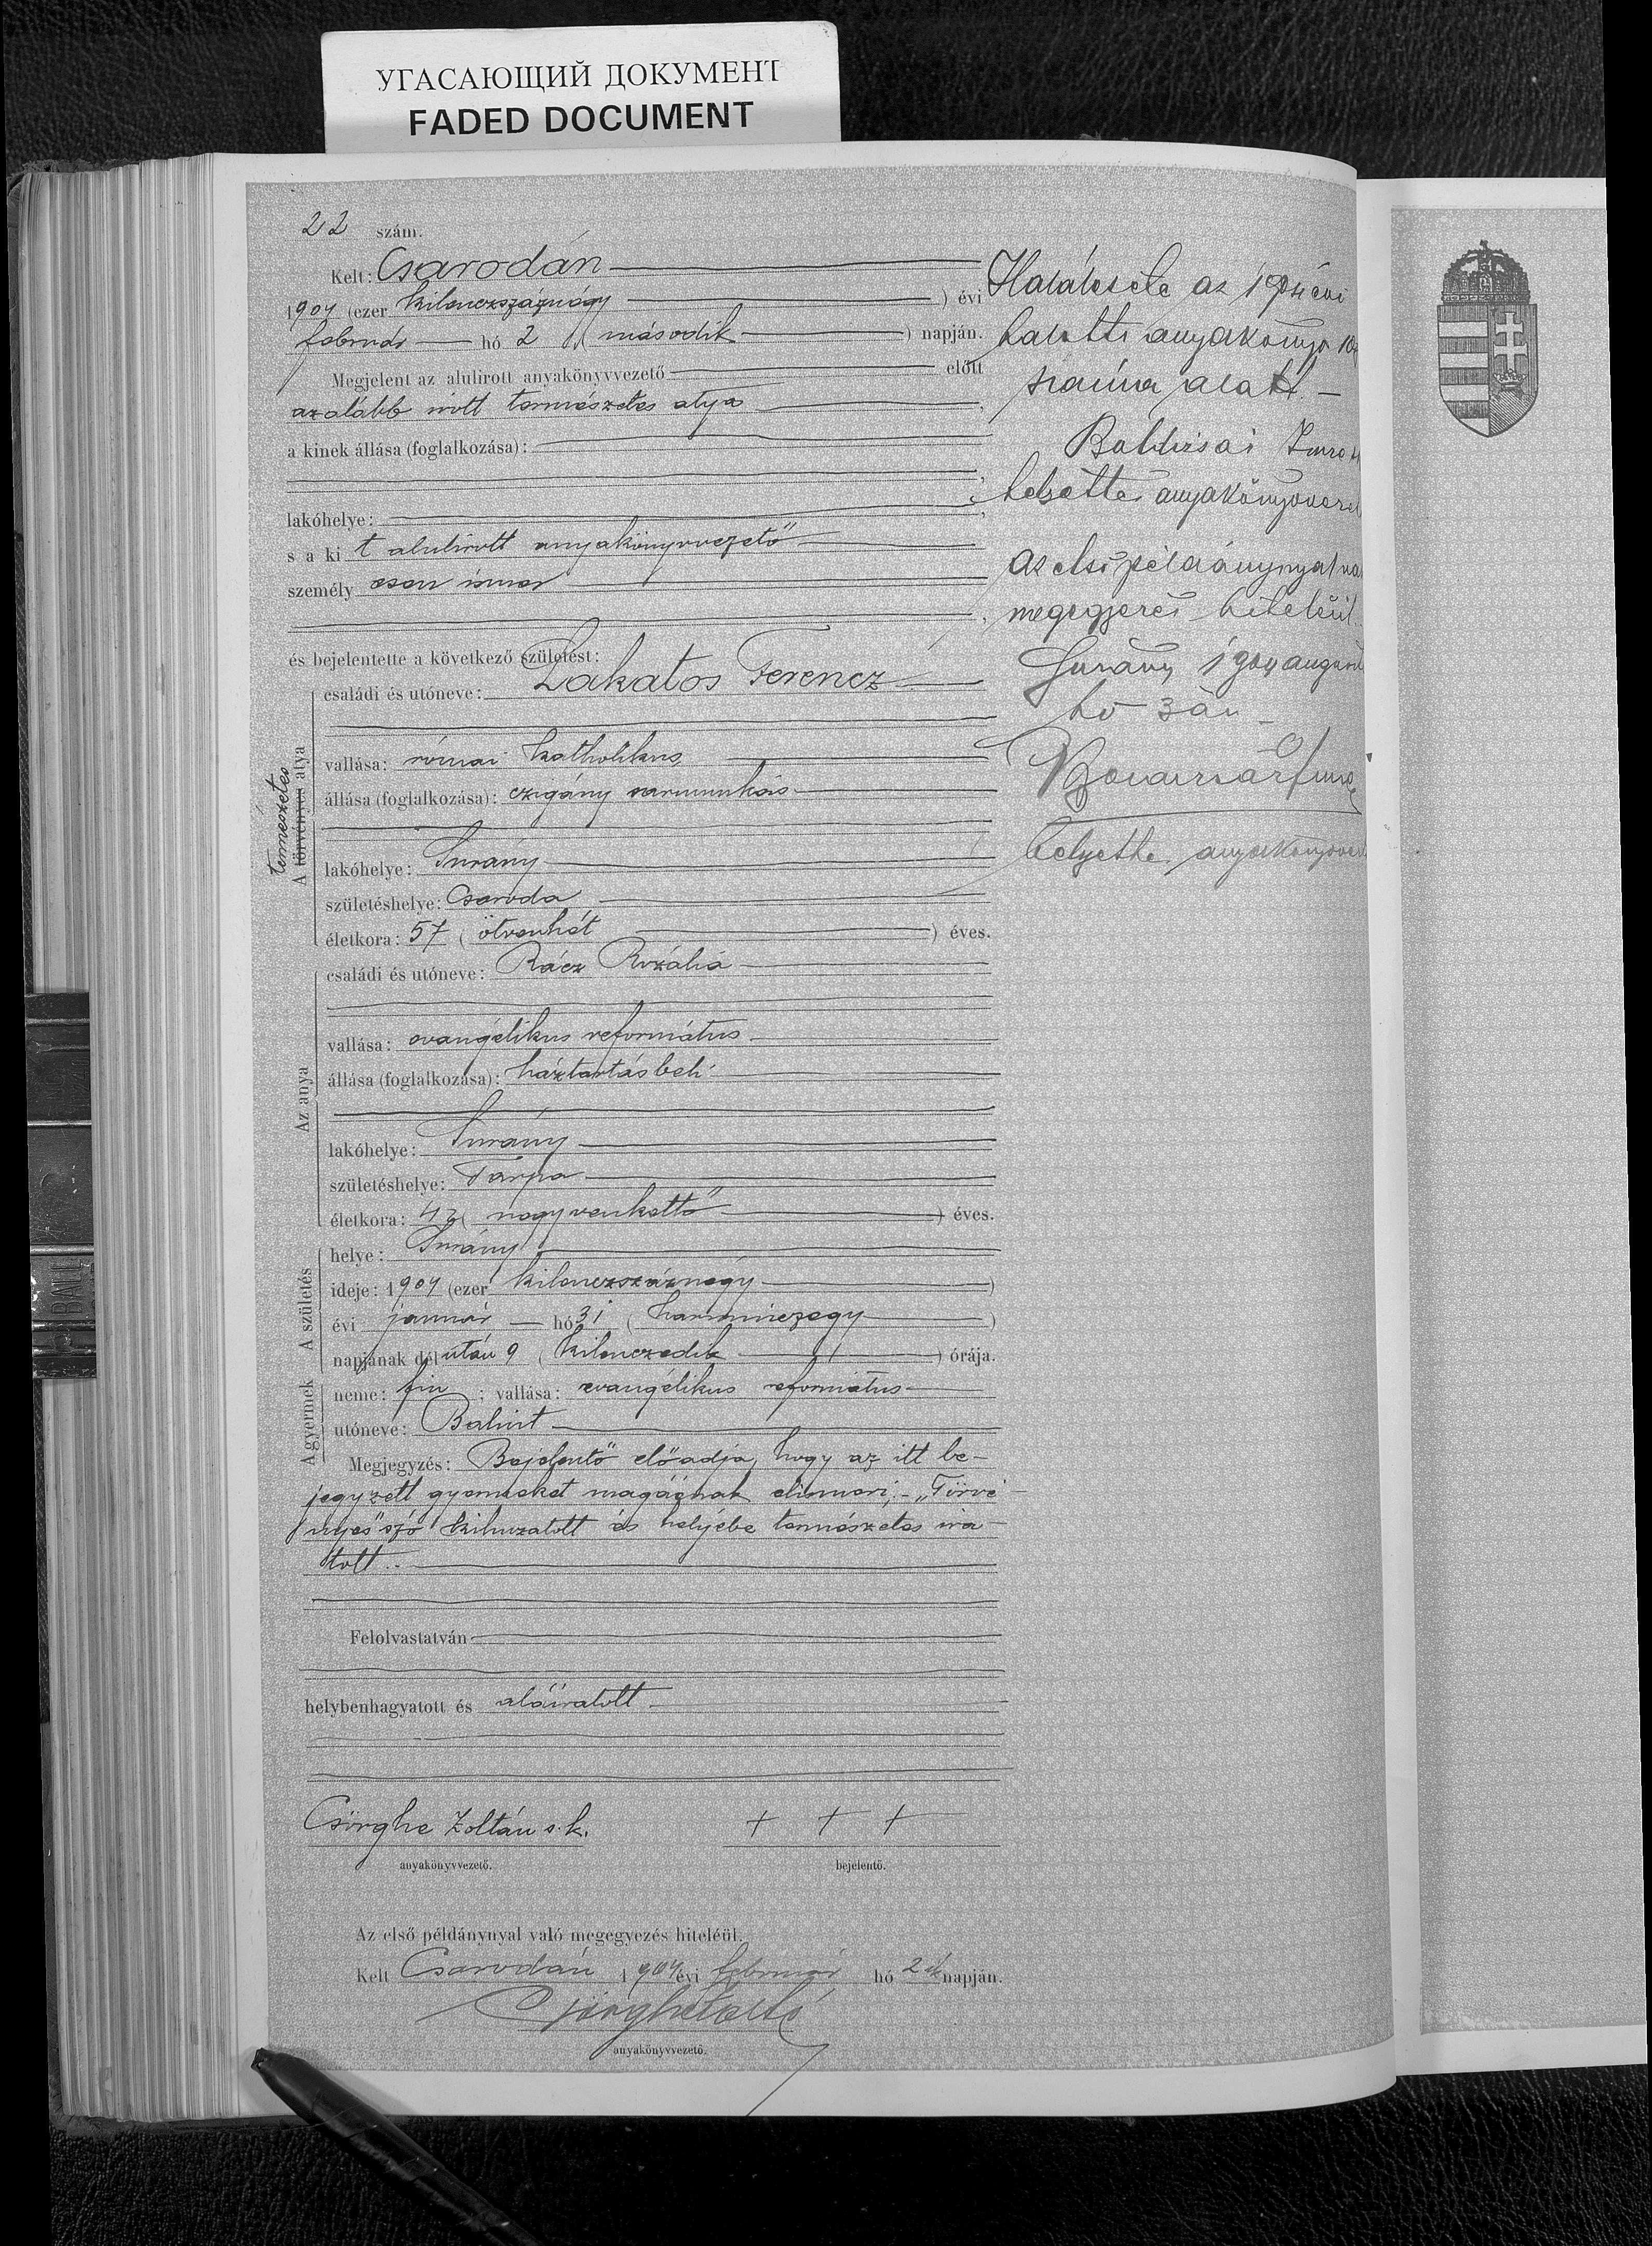 УГАСАЮЩИЙ ДОКУМЕНТ
FADED DOCUMENT
22 szám.
Kelt: Csarodán
1904 (ezer kilenczszáznégy ) évi
február hó 2 (második ) napján.
Megjelent az alulirott anyakönyvvezető előtt
az alább irott természetes atya
a kinek állása (foglalkozása):
lakóhelye:
s a ki t alulirott anyakönyvvezető
személy esen ismer
és bejelentette a következő születést:
A törvényes atya
természetes
családi és utóneve: Lakatos Ferencz
vallása: római katholikus
állása (foglalkozása): czigány
lakóhelye: Surány
születéshelye: Csaroda
életkora: 57 (ötvenhét ) éves.
Az anya
családi és utóneve: Rácz Rozália
vallása: evangélikus református
állása (foglalkozása): háztartásbeli
lakóhelye: Surány
születéshelye: Tarpa
életkora: 42 (negyvenkettő ) éves.
A születés
helye: Surány
ideje: 1904 (ezer kilenczszáznégy )
évi január hó 31 (harminczegy )
napjának délután 9 (kilenczedik ) órája.
A gyermek
neme: fiu ; vallása: evangélikus református
utóneve: Bálint
Megjegyzés: Bejelentő előadja, hogy az itt be-
jegyzett gyermeket magáénak elismeri; - „Törvé-
nyes" szó kihuzatott és helyébe természetes ira-
tott. -
Felolvastatván
helybenhagyatott és aláiratott
Csörghe Zoltán s. k. + + +
anyakönyvvezető. bejelentő.
Az első példánynyal való megegyezés hiteléül.
Kelt Csarodán 1904 évi február hó 2 ik napján.
anyakönyvvezető.
Halálesete az 1904 évi
halotti anyakönyv
száma alatt -
Imre
helyettes
Az első példánynyal
megegyezés hiteléül.
Surány 1904
hó 3án
helyettes
BALL